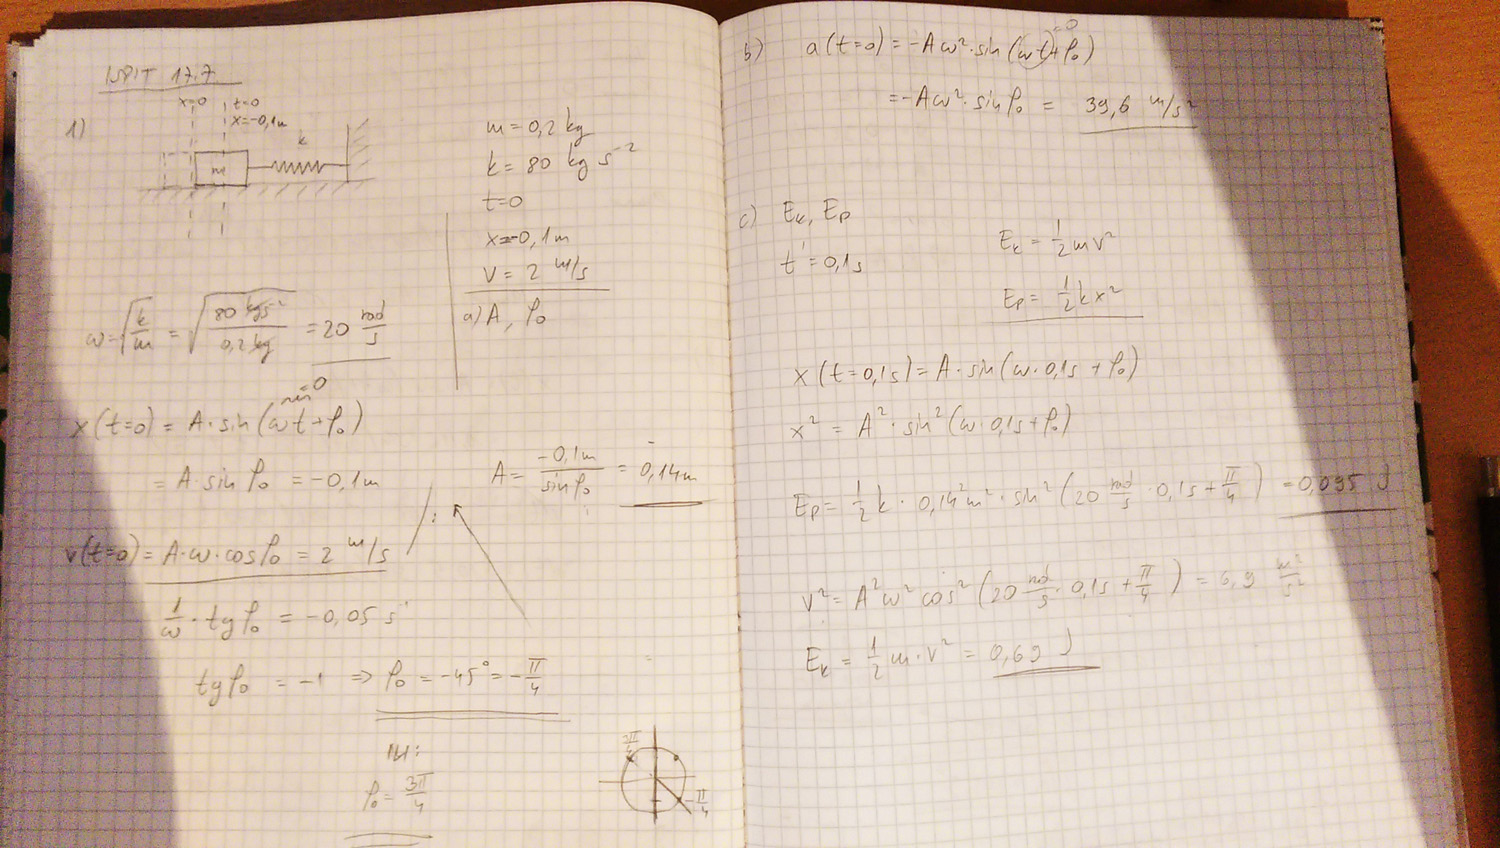 ISPIT 17.7.
x=0
t=0
x=-0,1m
1)
k
m
m = 0,2 kg
k = 80 kg s⁻²
t=0
x=-0,1m
v = 2 m/s
a) A, φ₀
ω = √(k/m) = √(80 kg s⁻² / 0,2 kg) = 20 rad/s
=0
x(t=0) = A·sin(ωt+φ₀)
= A·sin φ₀ = -0,1m
A = -0,1m / sin φ₀ = 0,14m
v(t=0) = A·ω·cos φ₀ = 2 m/s
/:
1/ω · tg φ₀ = -0,05 s
tg φ₀ = -1 => φ₀ = -45° = -π/4
ILI:
φ₀ = 3π/4
3π/4
-π/4
b) a(t=0) = -Aω²·sin(ωt+φ₀)
=0
= -Aω²·sin φ₀ = 39,6 m/s²
c) Eₖ, Eₚ
t' = 0,1s
Eₖ = 1/2 mv²
Eₚ = 1/2 kx²
x(t=0,1s) = A·sin(ω·0,1s + φ₀)
x² = A²·sin²(ω·0,1s+φ₀)
Eₚ = 1/2 k · 0,14² m² · sin²(20 rad/s · 0,1s + π/4) = 0,095 J
v² = A²ω² cos²(20 rad/s · 0,1s + π/4) = 6,9 m²/s²
Eₖ = 1/2 m·v² = 0,69 J